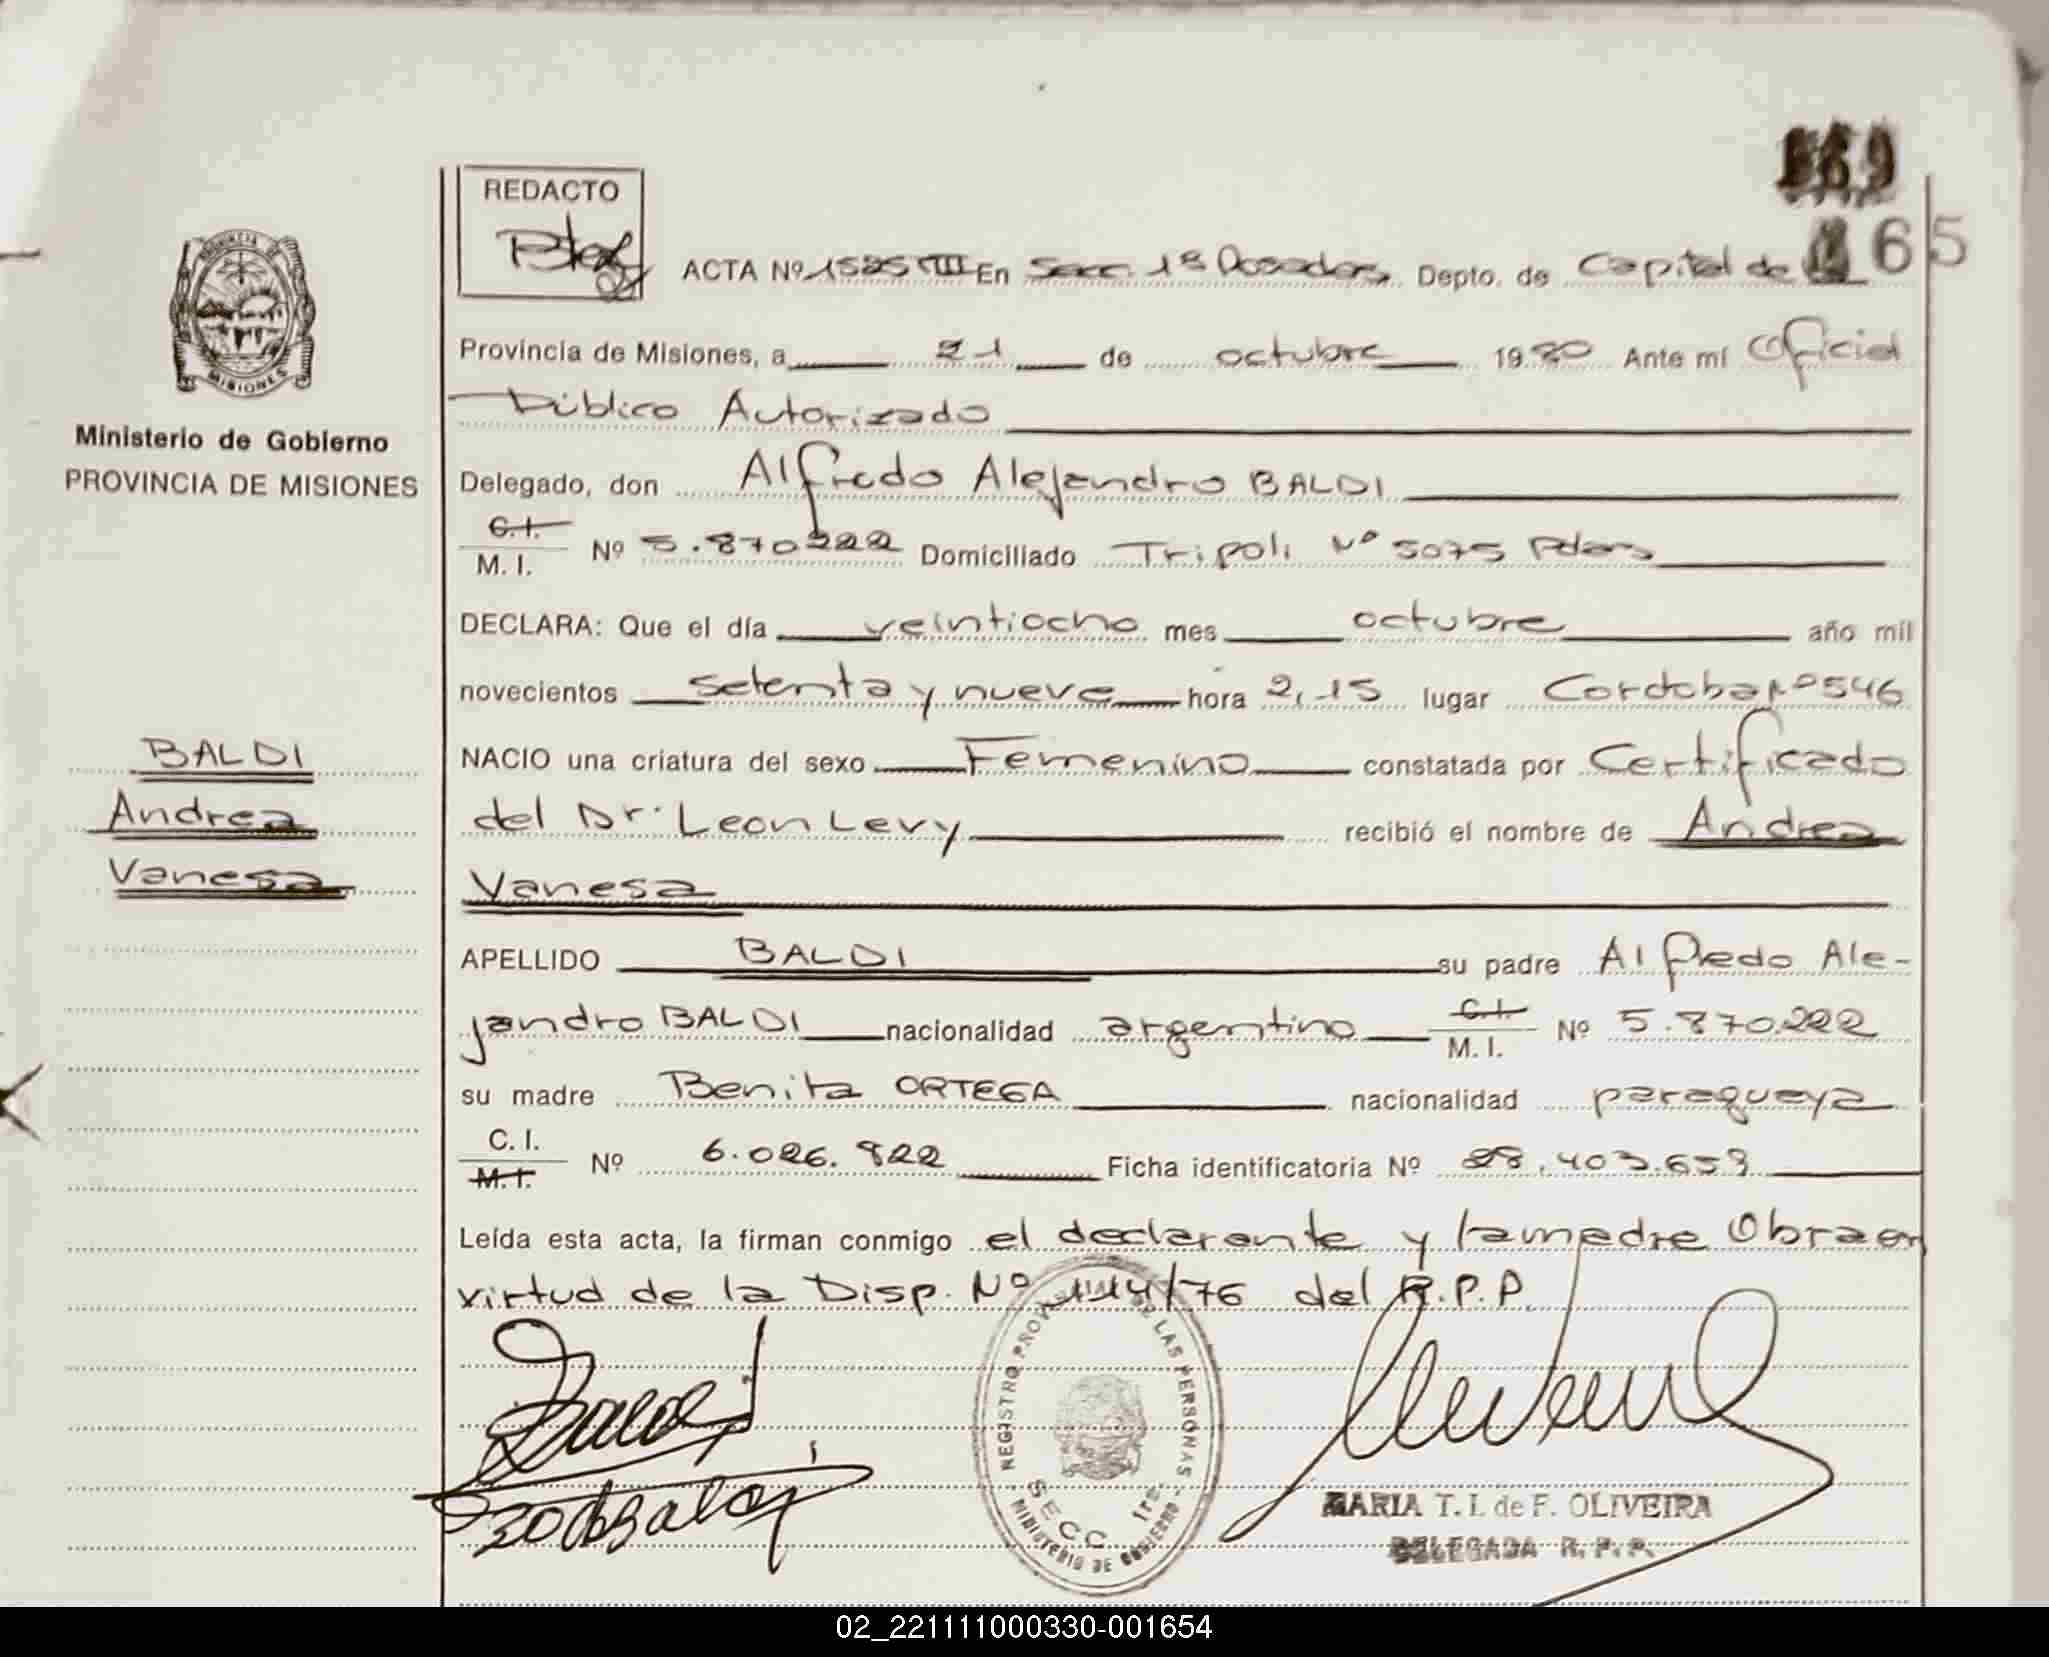 169
REDACTO
165
ACTA Nº 1525 III En Secc. 1ª Posadas Depto. de Capital de la
PROVINCIA DE MISIONES
Provincia de Misiones, a 21 de octubre 1980 Ante mí Oficial
Público Autorizado
Ministerio de Gobierno
PROVINCIA DE MISIONES
Delegado, don Alfredo Alejandro BALDI
C.I. M.I. Nº 5.870222 Domiciliado Tripoli Nº 5075 Pdas
DECLARA: Que el día veintiocho mes octubre año mil
novecientos setenta y nueve hora 2,15 lugar Cordoba Nº 546
BALDI
NACIO una criatura del sexo Femenino constatada por Certificado
Andrea
del Dr. Leon Levy recibió el nombre de Andrea
Vanesa
Vanesa
APELLIDO BALDI su padre Alfredo Ale-
jandro BALDI nacionalidad argentino C.I. M.I. Nº 5.870.222
su madre Benita ORTEGA nacionalidad paraguaya
C.I. M.I. Nº 6.026.822 Ficha identificatoria Nº 28.403.659
Leída esta acta, la firman conmigo el declarante y la madre Obra en
virtud de la Disp. Nº 114/76 del R.P.P.
REGISTRO PROVINCIAL DE LAS PERSONAS - MINISTERIO DE GOBIERNO -
SECC 1ra.
MARIA T. I. de F. OLIVEIRA
DELEGADA R. P. P.
02_221111000330-001654